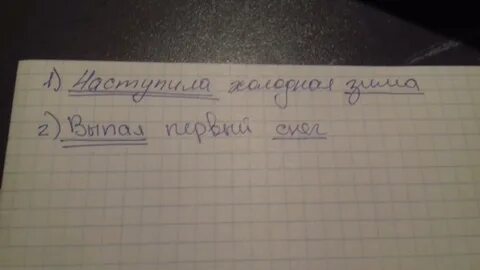 1) Наступила холодная зима
2) Выпал первый снег